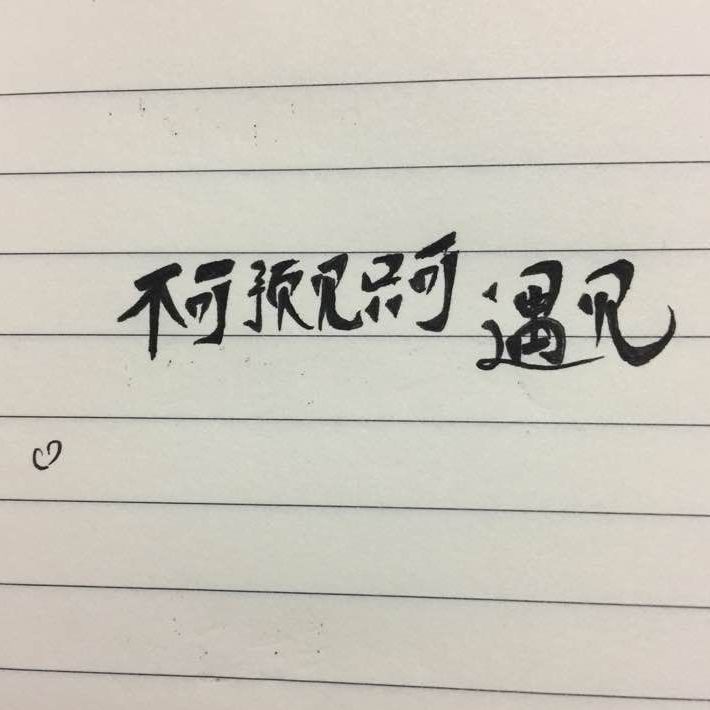 不可预见只可遇见